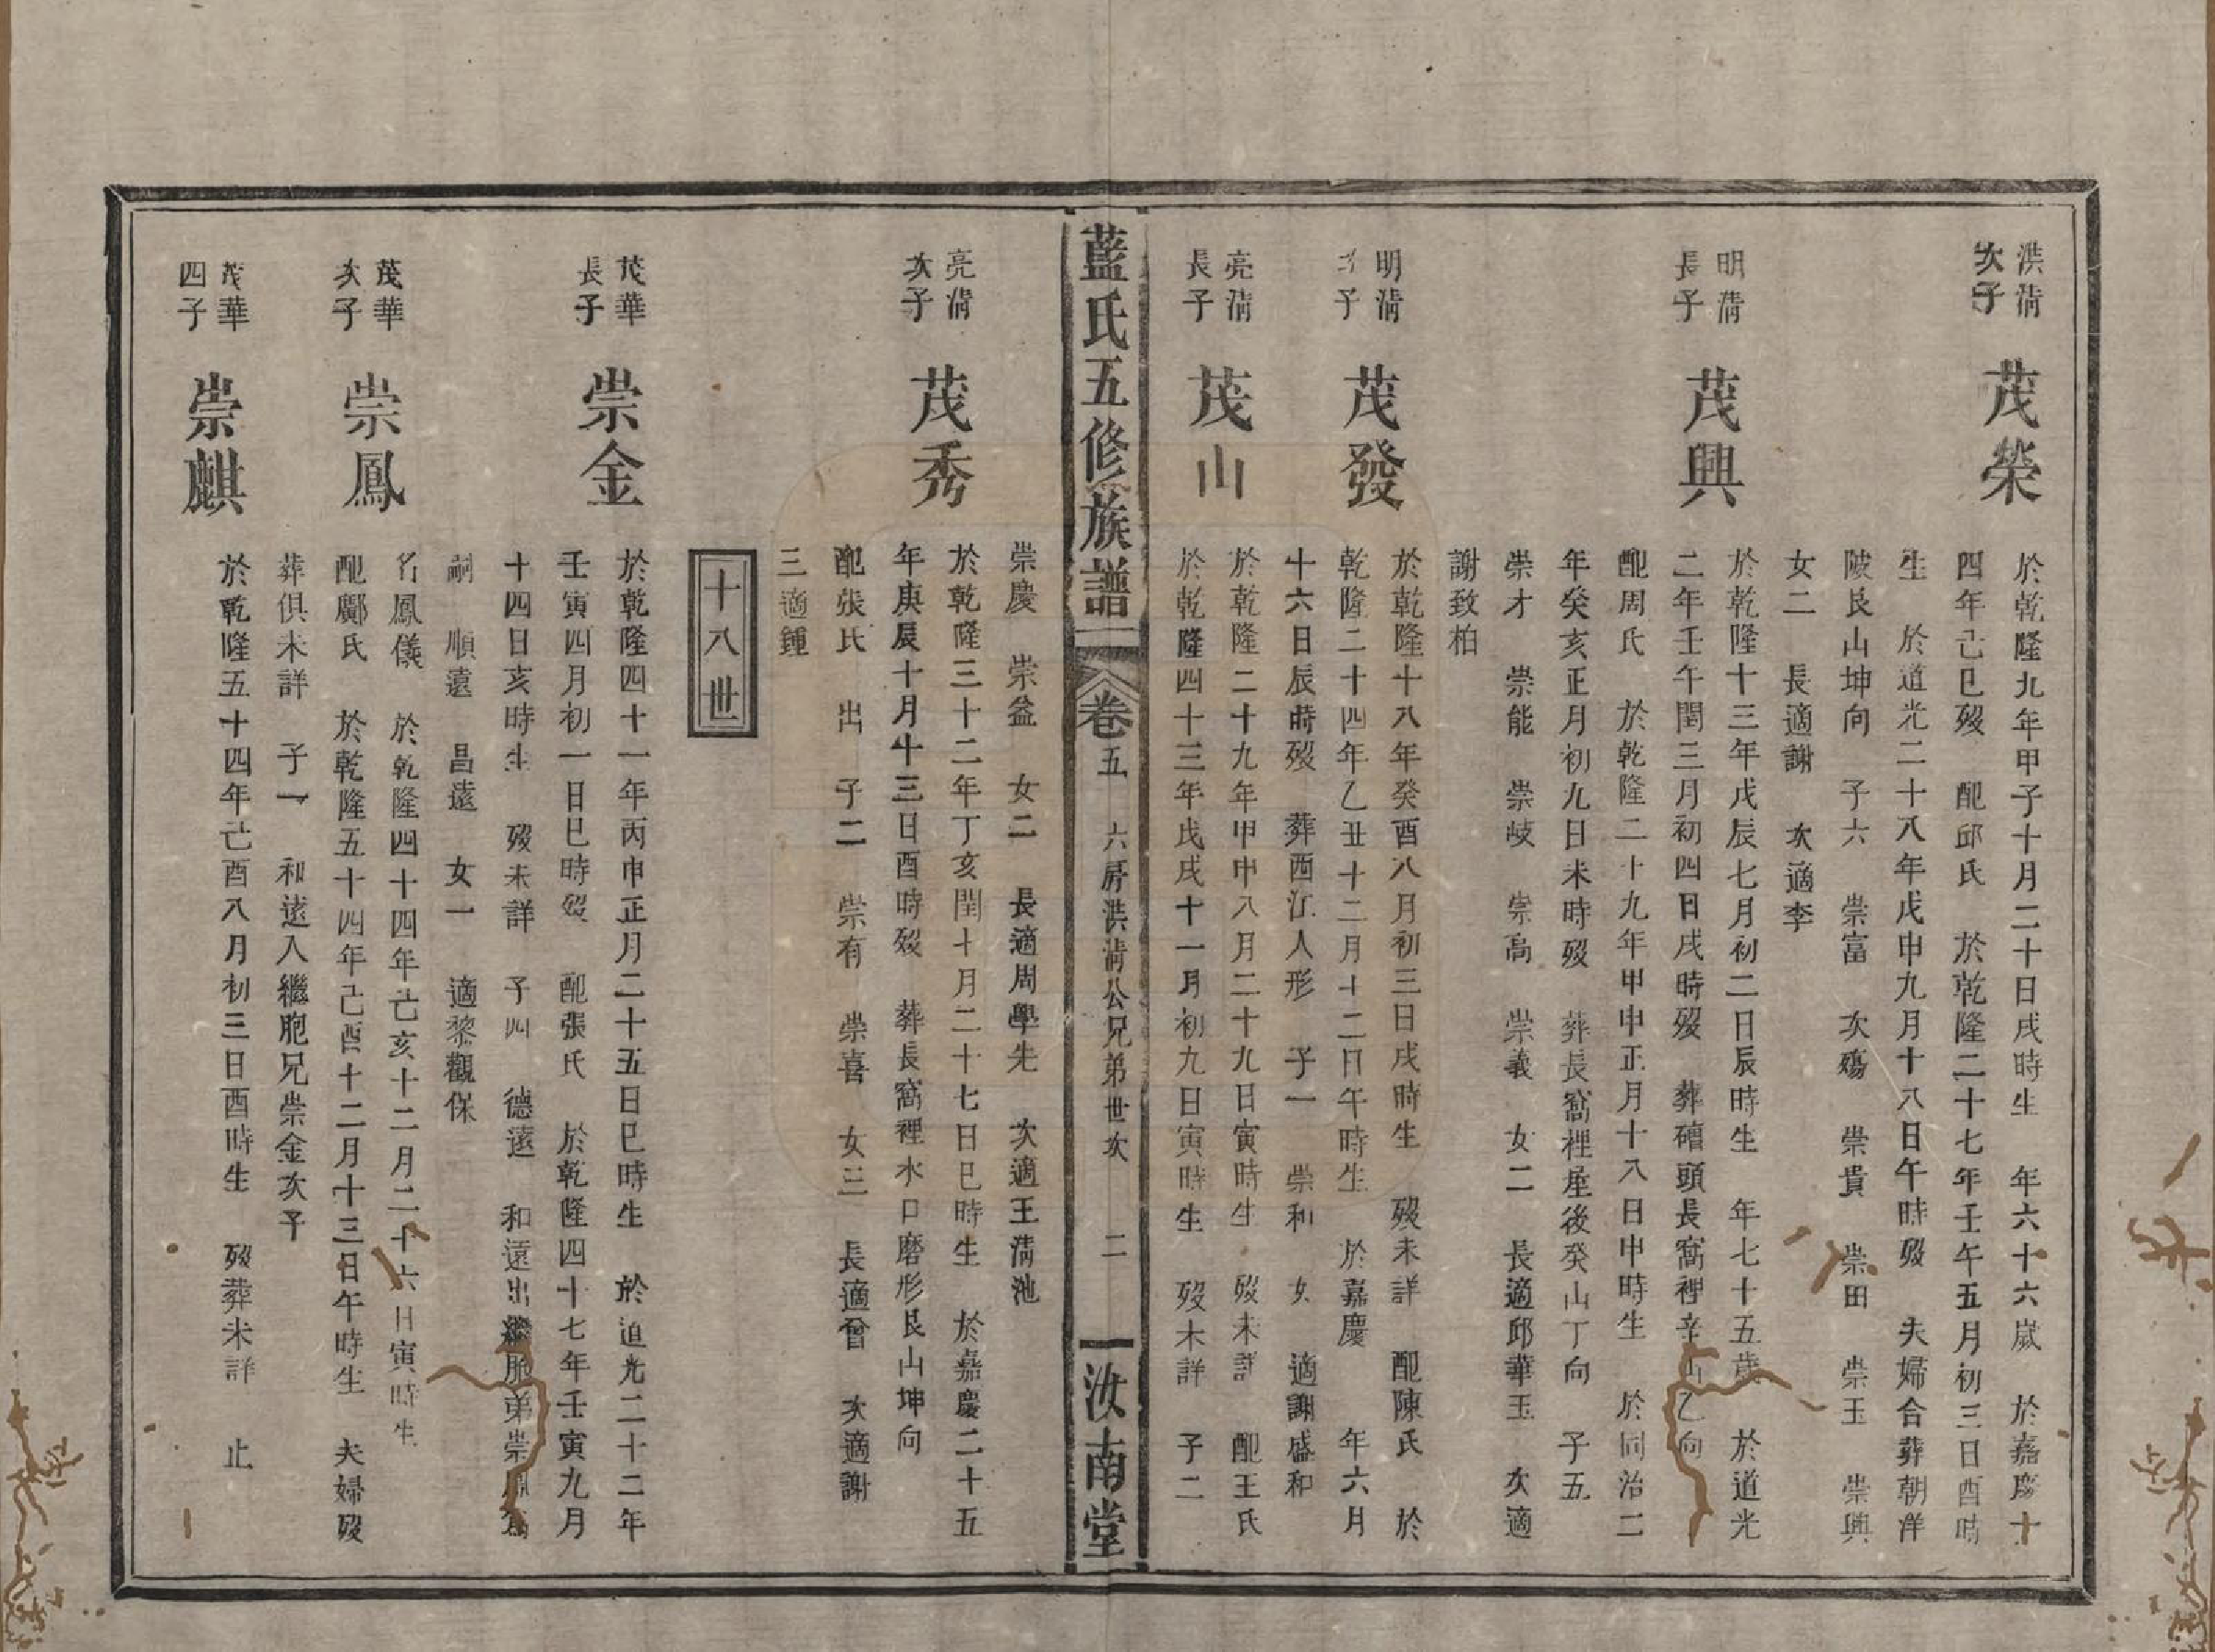 洪淸
次子
茂榮
於乾隆九年甲子十月二十日戌時生 年六十六歲 於嘉慶十
四年己巳歿 配邱氏 於乾隆二十七年壬午五月初三日酉時
生 於道光二十八年戊申九月十八日午時歿 夫婦合葬朝洋
陂艮山坤向 子六 崇富 次殤 崇貴 崇田 崇玉 崇興
女二 長適謝 次適李
明淸
長子
茂興
於乾隆十三年戊辰七月初二日辰時生 年七十五歲 於道光
二年壬午閏三月初四日戌時歿 葬磜頭長窩裡辛山乙向
配周氏 於乾隆二十九年甲申正月十八日申時生 於同治二
年癸亥正月初九日未時歿 葬長窩裡屋後癸山丁向 子五
崇才 崇能 崇歧 崇高 崇義 女二 長適邱華玉 次適
謝致柏
明淸
次子
茂發
於乾隆十八年癸酉八月初三日戌時生 歿未詳 配陳氏 於
乾隆二十四年乙丑十二月十二日午時生 於嘉慶 年六月
十六日辰時歿 葬西江人形 子一 崇和 女 適謝盛和
亮淸
長子
茂山
於乾隆二十九年甲申八月二十九日寅時生 歿未詳 配王氏
於乾隆四十三年戊戌十一月初九日寅時生 歿未詳 子二
藍氏五修族譜 卷五 六房洪淸公兄弟世次 二 汝南堂
崇慶 崇益 女二 長適周學先 次適王滿池
亮淸
次子
茂秀
於乾隆三十二年丁亥閏十月二十七日巳時生 於嘉慶二十五
年庚辰十月十三日酉時歿 葬長窩裡水口磨形艮山坤向
配張氏 出 子二 崇有 崇喜 女三 長適曾 次適謝
三適鍾
十八世
茂華
長子
崇金
於乾隆四十一年丙申正月二十五日巳時生 於道光二十二年
壬寅四月初一日巳時歿 配張氏 於乾隆四十七年壬寅九月
十四日亥時生 歿未詳 子四 德遠 和遠出繼胞弟崇鳳爲
嗣 順遠 昌遠 女一 適黎觀保
茂華
次子
崇鳳
名鳳儀 於乾隆四十四年己亥十二月二十六日寅時生
配鄺氏 於乾隆五十四年己酉十二月十三日午時生 夫婦歿
葬俱未詳 子一 和遠入繼胞兄崇金次子
茂華
四子
崇麒
於乾隆五十四年己酉八月初三日酉時生 歿葬未詳 止